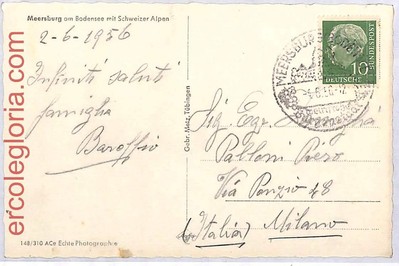 Meersburg am Bodensee mit Schweizer Alpen
2-6-1956
Infiniti saluti
famiglia
Baroffio
148/310 ACe Echte Photographie
Gebr. Metz, Tübingen
MEERSBURG
10
DEUTSCHE
BUNDESPOST
Sig. Egr.
Palloni Piero
Via Ponzio 48
(Italia) Milano
ercolegloria.com